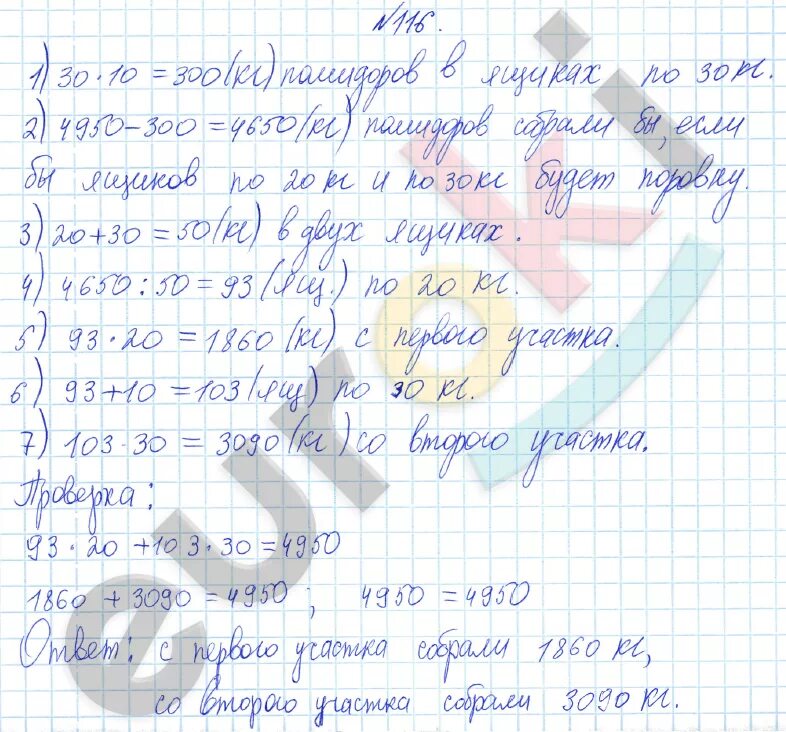 №116.
1) 30·10 = 300 (кг) помидоров в ящиках по 30 кг.
2) 4950-300 = 4650 (кг) помидоров собрали бы, если
бы ящиков по 20 кг и по 30 кг будет поровну.
3) 20+30 = 50 (кг) в двух ящиках.
4) 4650:50 = 93 (ящ.) по 20 кг.
5) 93·20 = 1860 (кг) с первого участка.
6) 93+10 = 103 (ящ) по 30 кг.
7) 103·30 = 3090 (кг) со второго участка.
Проверка:
93·20 + 103·30 = 4950
1860 + 3090 = 4950 ; 4950 = 4950
Ответ: с первого участка собрали 1860 кг,
со второго участка собрали 3090 кг.
euroki